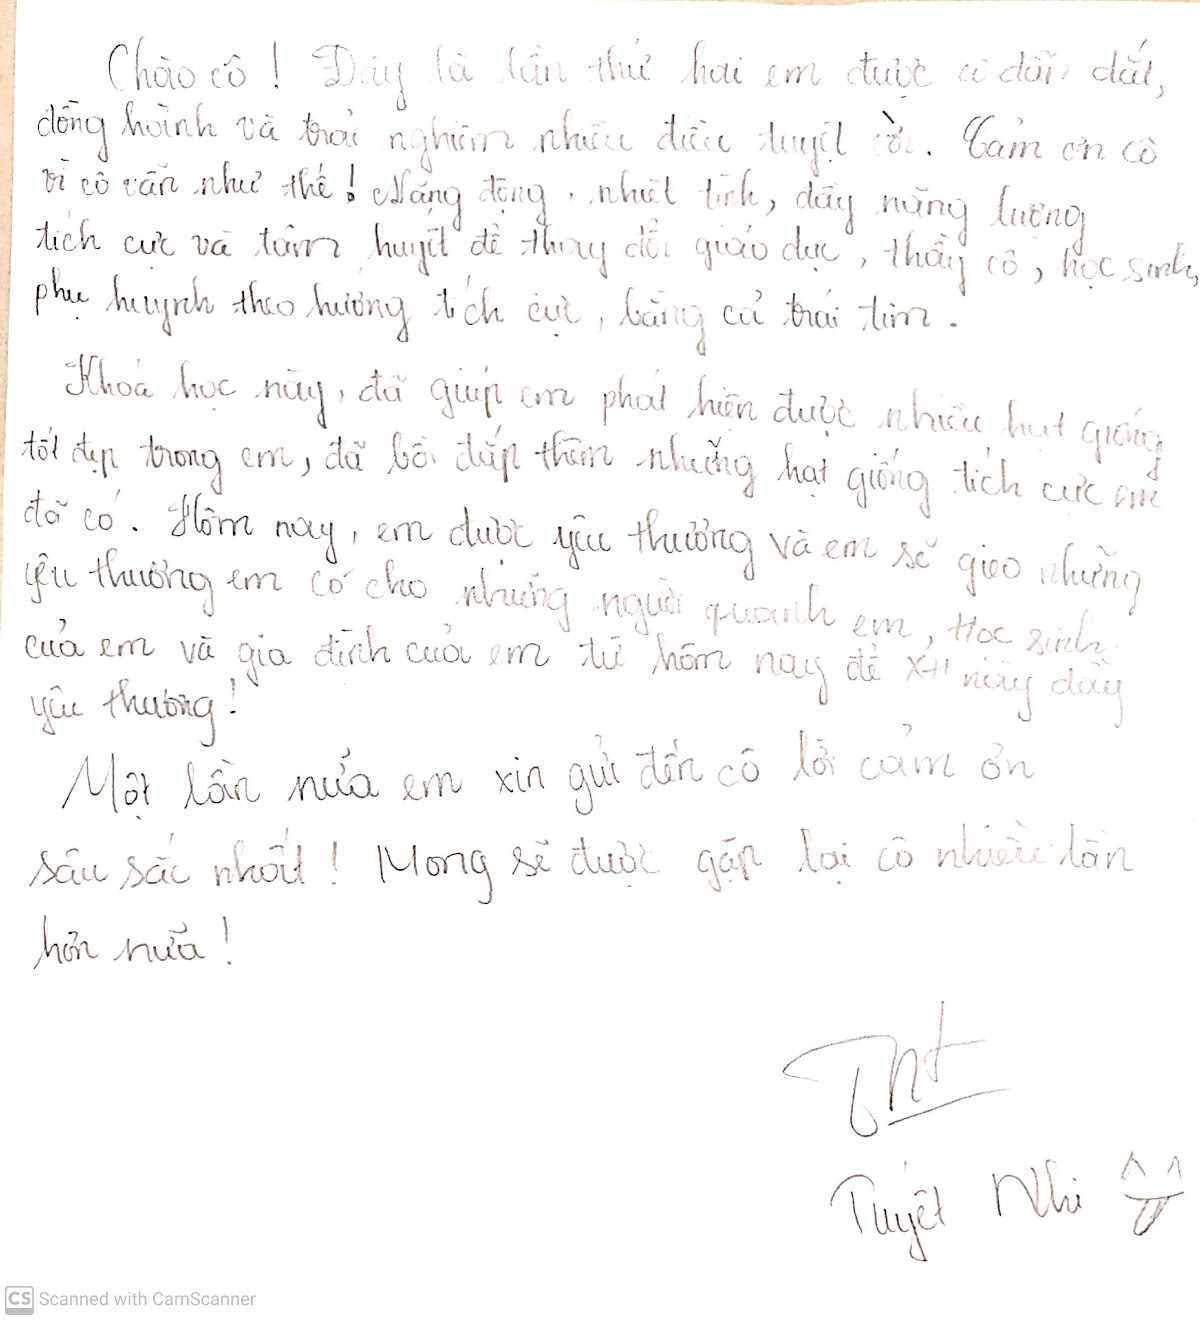 Chào cô! Đây là lần thứ hai em được cô dẫn dắt,
đồng hành và trải nghiệm nhiều điều tuyệt vời. Cảm ơn cô
vì cô vẫn như thế! Năng động, nhiệt tình, đầy năng lượng
tích cực và tâm huyết để thay đổi giáo dục, thầy cô, học sinh,
phụ huynh theo hướng tích cực, bằng cả trái tim.
Khoá học này, đã giúp em phát hiện được nhiều hạt giống
tốt đẹp trong em, đã bồi đắp thêm những hạt giống tích cực em
đã có. Hôm nay, em được yêu thương và em sẽ gieo những
yêu thương em có cho những người quanh em, Học sinh
của em và gia đình của em từ hôm nay để XH này đầy
yêu thương!
Một lần nữa em xin gửi đến cô lời cảm ơn
sâu sắc nhất! Mong sẽ được gặp lại cô nhiều lần
hơn nữa!
Tuyết Nhi
CS Scanned with CamScanner